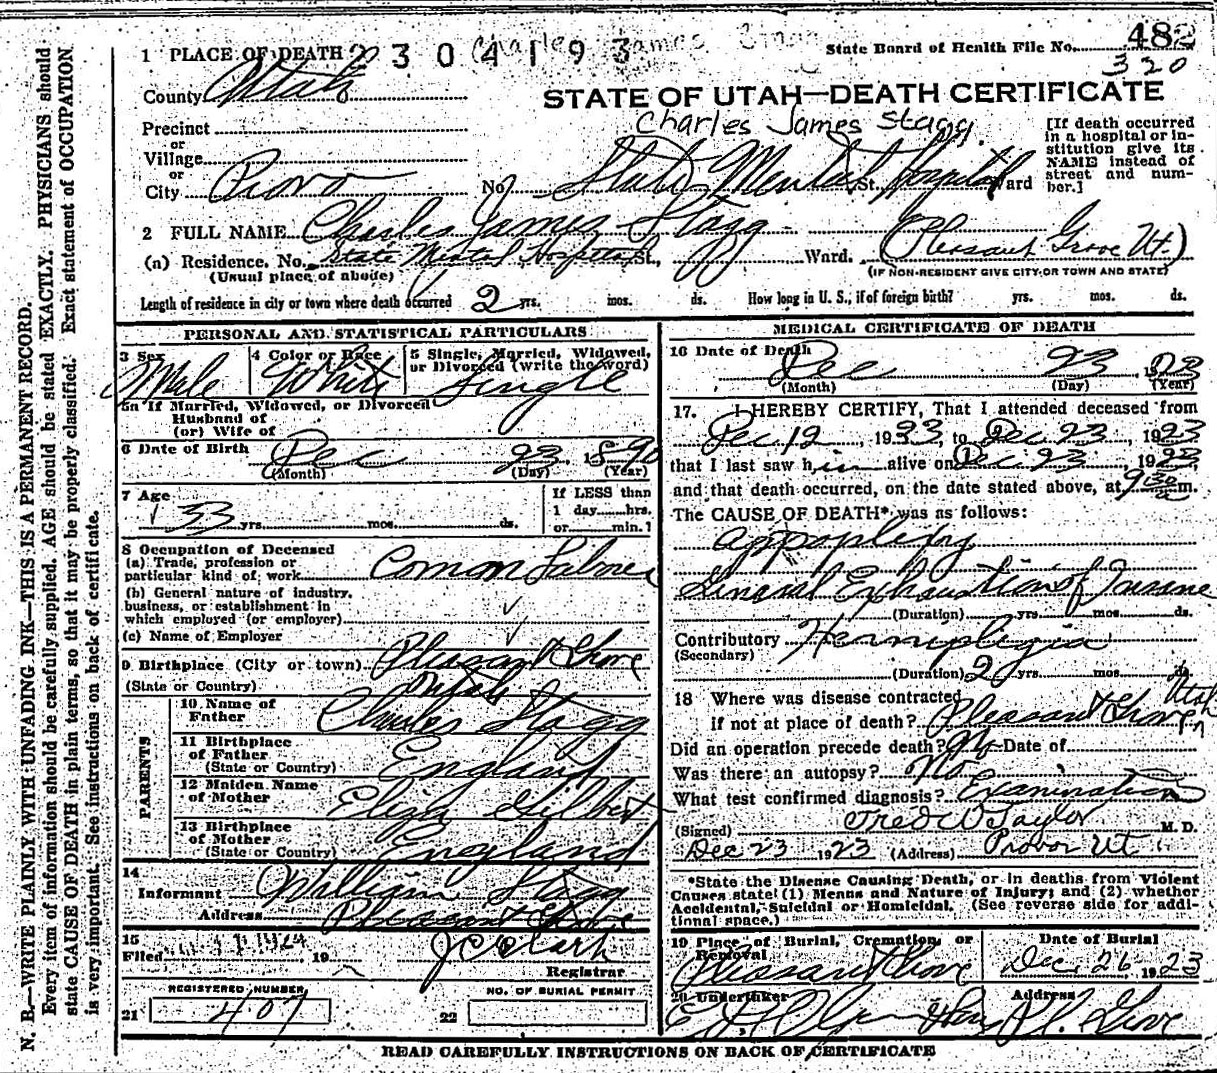 1 PLACE OF DEATH 2304193 Charles James
State Board of Health File No. 482
320
County Utah
STATE OF UTAH—DEATH CERTIFICATE
Charles James Stagg
Precinct
or
Village
or
City Provo No. State Mental Hospital St. Ward
[If death occurred
in a hospital or in-
stitution give its
NAME instead of
street and num-
ber.]
2 FULL NAME Charles James Stagg
(a) Residence. No. State Mental Hospital St., Ward. (Pleasant Grove Ut)
(Usual place of abode) (IF NON-RESIDENT GIVE CITY OR TOWN AND STATE)
Length of residence in city or town where death occurred 2 yrs. mos. ds. How long in U. S., if of foreign birth? yrs. mos. ds.
PERSONAL AND STATISTICAL PARTICULARS
3 Sex Male
4 Color or Race White
5 Single, Married, Widowed,
or Divorced (write the word)
Single
5a If Married, Widowed, or Divorced
Husband of
(or) Wife of
6 Date of Birth Dec 23 1890
(Month) (Day) (Year)
7 Age
33 yrs. mos. ds.
If LESS than
1 day hrs.
or min. ?
8 Occupation of Deceased
(a) Trade, profession or
particular kind of work Comon Laborer
(b) General nature of industry,
business, or establishment in
which employed (or employer)
(c) Name of Employer
9 Birthplace (City or town) Pleasant Grove
(State or Country) Utah
PARENTS
10 Name of
Father Charles Stagg
11 Birthplace
of Father
(State or Country) England
12 Maiden Name
of Mother Eliza Gilbert
13 Birthplace
of Mother
(State or Country) England
14
Informant William Stagg
Address Pleasant Grove
15
Filed 1924 19 J C Clark
Registrar
REGISTERED NUMBER
21 407
NO. OF BURIAL PERMIT
22
MEDICAL CERTIFICATE OF DEATH
16 Date of Death Dec 23 1923
(Month) (Day) (Year)
17. I HEREBY CERTIFY, That I attended deceased from
Dec 12, 1923, to Dec 23, 1923
that I last saw him alive on Dec 23 1923
and that death occurred, on the date stated above, at 9 30 a m.
The CAUSE OF DEATH* was as follows:
Appoplexy
General Exhaustion of Insane
(Duration) yrs. mos. ds.
Contributory Hemiplegia
(Secondary)
(Duration) 2 yrs. mos. ds.
18 Where was disease contracted
if not at place of death? Pleasant Grove Utah
Did an operation precede death? No Date of
Was there an autopsy? No
What test confirmed diagnosis? Examination
(Signed) Fred W Taylor M. D.
Dec 23 1923 (Address) Provo Ut
*State the Disease Causing Death, or in deaths from Violent
Causes state (1) Means and Nature of Injury; and (2) whether
Accidental, Suicidal or Homicidal. (See reverse side for addi-
tional space.)
19 Place of Burial, Cremation, or
Removal
Pleasant Grove
Date of Burial
Dec. 26 1923
20 Undertaker
Address
Pl. Grove
READ CAREFULLY INSTRUCTIONS ON BACK OF CERTIFICATE
N. B.—WRITE PLAINLY WITH UNFADING INK—THIS IS A PERMANENT RECORD.
Every item of information should be carefully supplied. AGE should be stated EXACTLY. PHYSICIANS should
state CAUSE OF DEATH in plain terms, so that it may be properly classified. Exact statement of OCCUPATION
is very important. See instructions on back of certificate.